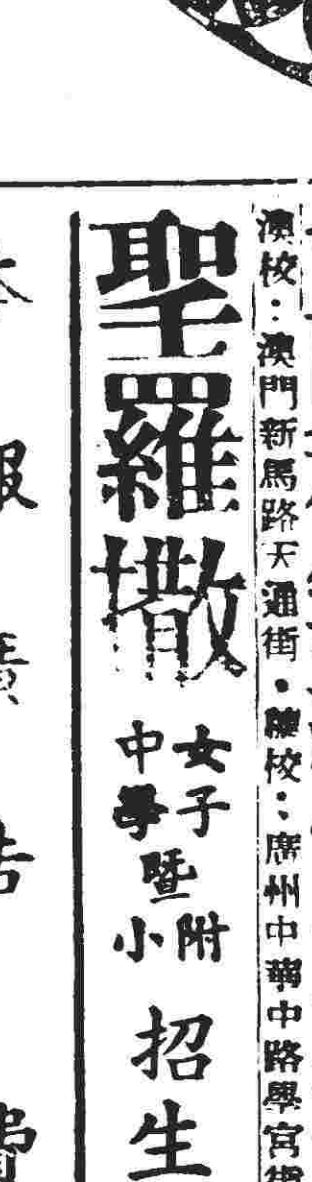 澳校：澳門新馬路天通街・校：廣州中華中路學宮街
聖羅撒女子中學暨附小招生
本報廣告費